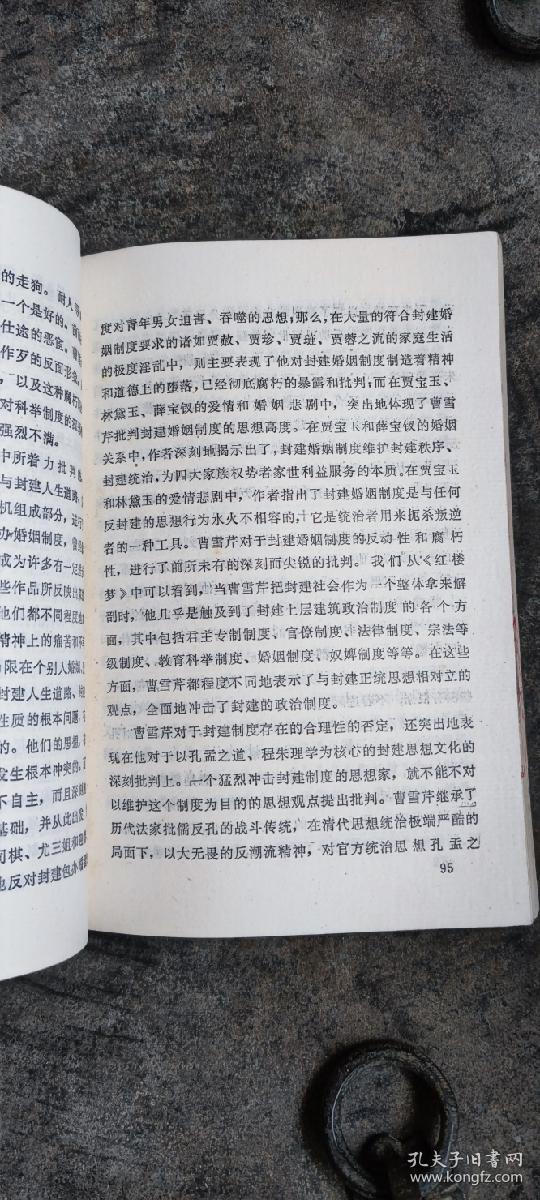 的走狗。耐人
一个是好的、
仕途的恶宦。
作歹的反面形
，以及这种腐朽
对科举制度的
强烈不满。
中所着力批判
与封建人生道路
机组成部分，进
办婚姻制度，曾
成为许多有一定
些作品所反映出
他们都不同程度
精神上的痛苦和
局限在个别人婚姻
封建人生道路、
性质的根本问题
的。他们的思想，
发生根本冲突的，
不自主，而且深
基础，并从此出发
司棋、尤三姐和
地反对封建包办婚
度对青年男女迫害、吞噬的思想，那么，在大量的符合封建婚
姻制度要求的诸如贾赦、贾珍、贾琏、贾蓉之流的家庭生活
的极度淫乱中，则主要表现了他对封建婚姻制度制造着精神
和道德上的堕落，已经彻底腐朽的暴露和批判；而在贾宝玉、
林黛玉、薛宝钗的爱情和婚姻悲剧中，突出地体现了曹雪
芹批判封建婚姻制度的思想高度。在贾宝玉和薛宝钗的婚姻
关系中，作者深刻地揭示出了，封建婚姻制度维护封建秩序、
封建统治，为四大家族权势者家世利益服务的本质。在贾宝玉
和林黛玉的爱情悲剧中，作者指出了封建婚姻制度是与任何
反封建的思想行为水火不相容的，它是统治者用来扼杀叛逆
者的一种工具。曹雪芹对于封建婚姻制度的反动性和腐朽
性，进行了前所未有的深刻而尖锐的批判。我们从《红楼
梦》中可以看到，当曹雪芹把封建社会作为一个整体拿来解
剖时，他几乎是触及到了封建上层建筑政治制度的各个方
面，其中包括君王专制制度、官僚制度、法律制度、宗法等
级制度、教育科举制度、婚姻制度、奴婢制度等等。在这些
方面，曹雪芹都程度不同地表示了与封建正统思想相对立的
观点，全面地冲击了封建的政治制度。
曹雪芹对于封建制度存在的合理性的否定，还突出地表
现在他对于以孔孟之道、程朱理学为核心的封建思想文化的
深刻批判上。一个猛烈冲击封建制度的思想家，就不能不对
以维护这个制度为目的的思想观点提出批判。曹雪芹继承了
历代法家批儒反孔的战斗传统，在清代思想统治极端严酷的
局面下，以大无畏的反潮流精神，对官方统治思想孔孟之
95
孔夫子旧书网
www.kongfz.com